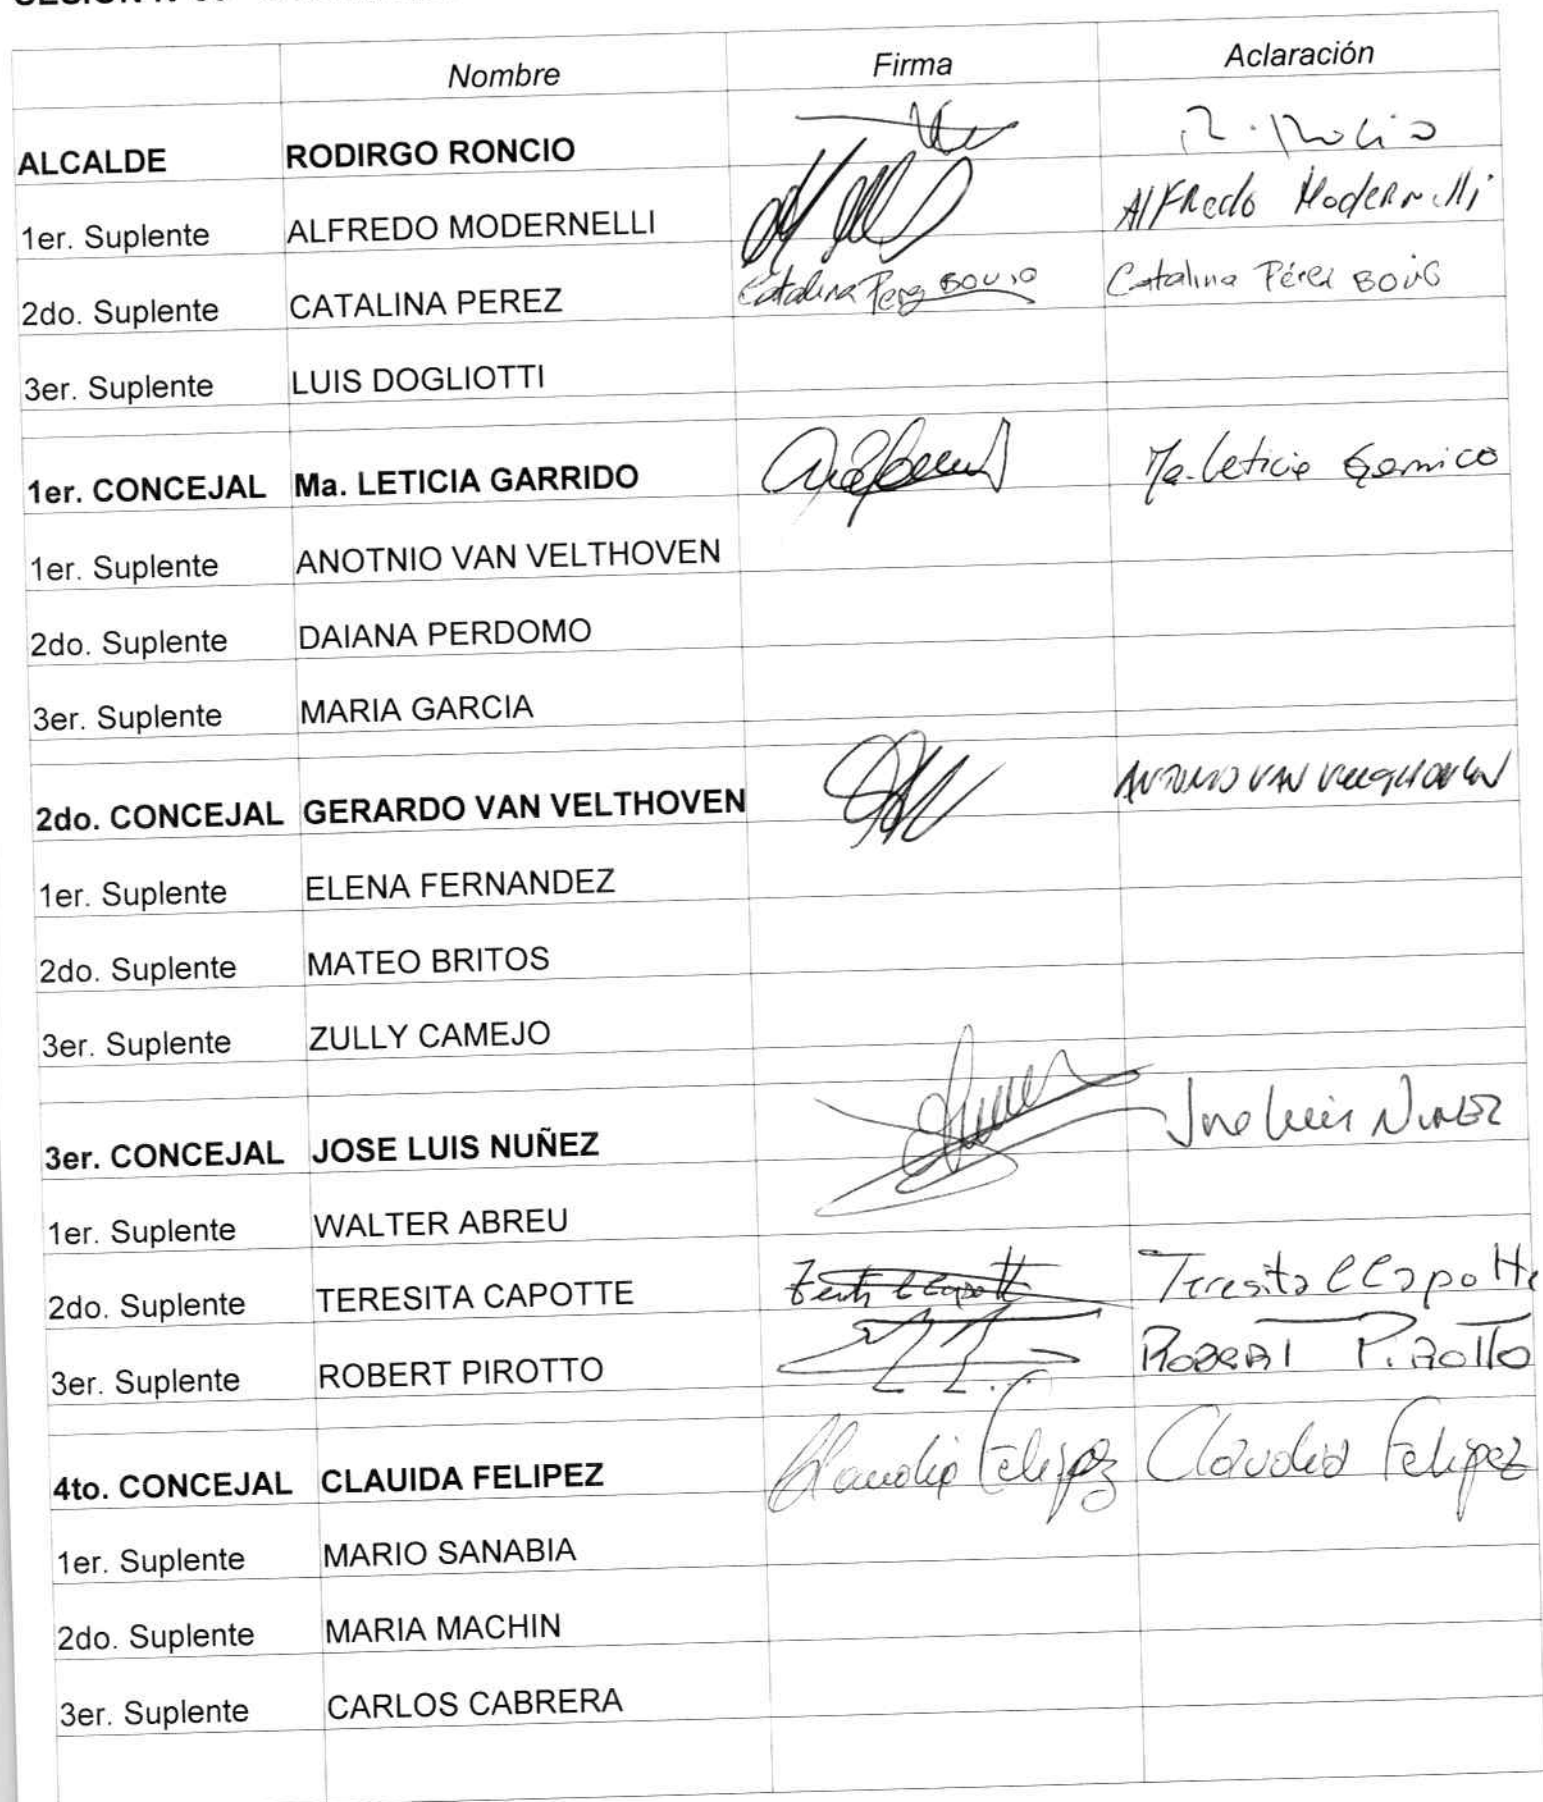 Nombre Firma Aclaración
ALCALDE RODIRGO RONCIO
1er. Suplente ALFREDO MODERNELLI Alfredo Modernelli
2do. Suplente CATALINA PEREZ Catalina Perez BOUIO Catalina Pérez
3er. Suplente LUIS DOGLIOTTI
1er. CONCEJAL Ma. LETICIA GARRIDO Ma. Leticia
1er. Suplente ANOTNIO VAN VELTHOVEN
2do. Suplente DAIANA PERDOMO
3er. Suplente MARIA GARCIA
2do. CONCEJAL GERARDO VAN VELTHOVEN ANTONIO VAN VELTHOVEN
1er. Suplente ELENA FERNANDEZ
2do. Suplente MATEO BRITOS
3er. Suplente ZULLY CAMEJO
3er. CONCEJAL JOSE LUIS NUÑEZ Jose Luis NUÑEZ
1er. Suplente WALTER ABREU
2do. Suplente TERESITA CAPOTTE Teresita C Capotte
3er. Suplente ROBERT PIROTTO ROBERT PIROTTO
4to. CONCEJAL CLAUIDA FELIPEZ Claudia Felipez Claudia Felipez
1er. Suplente MARIO SANABIA
2do. Suplente MARIA MACHIN
3er. Suplente CARLOS CABRERA